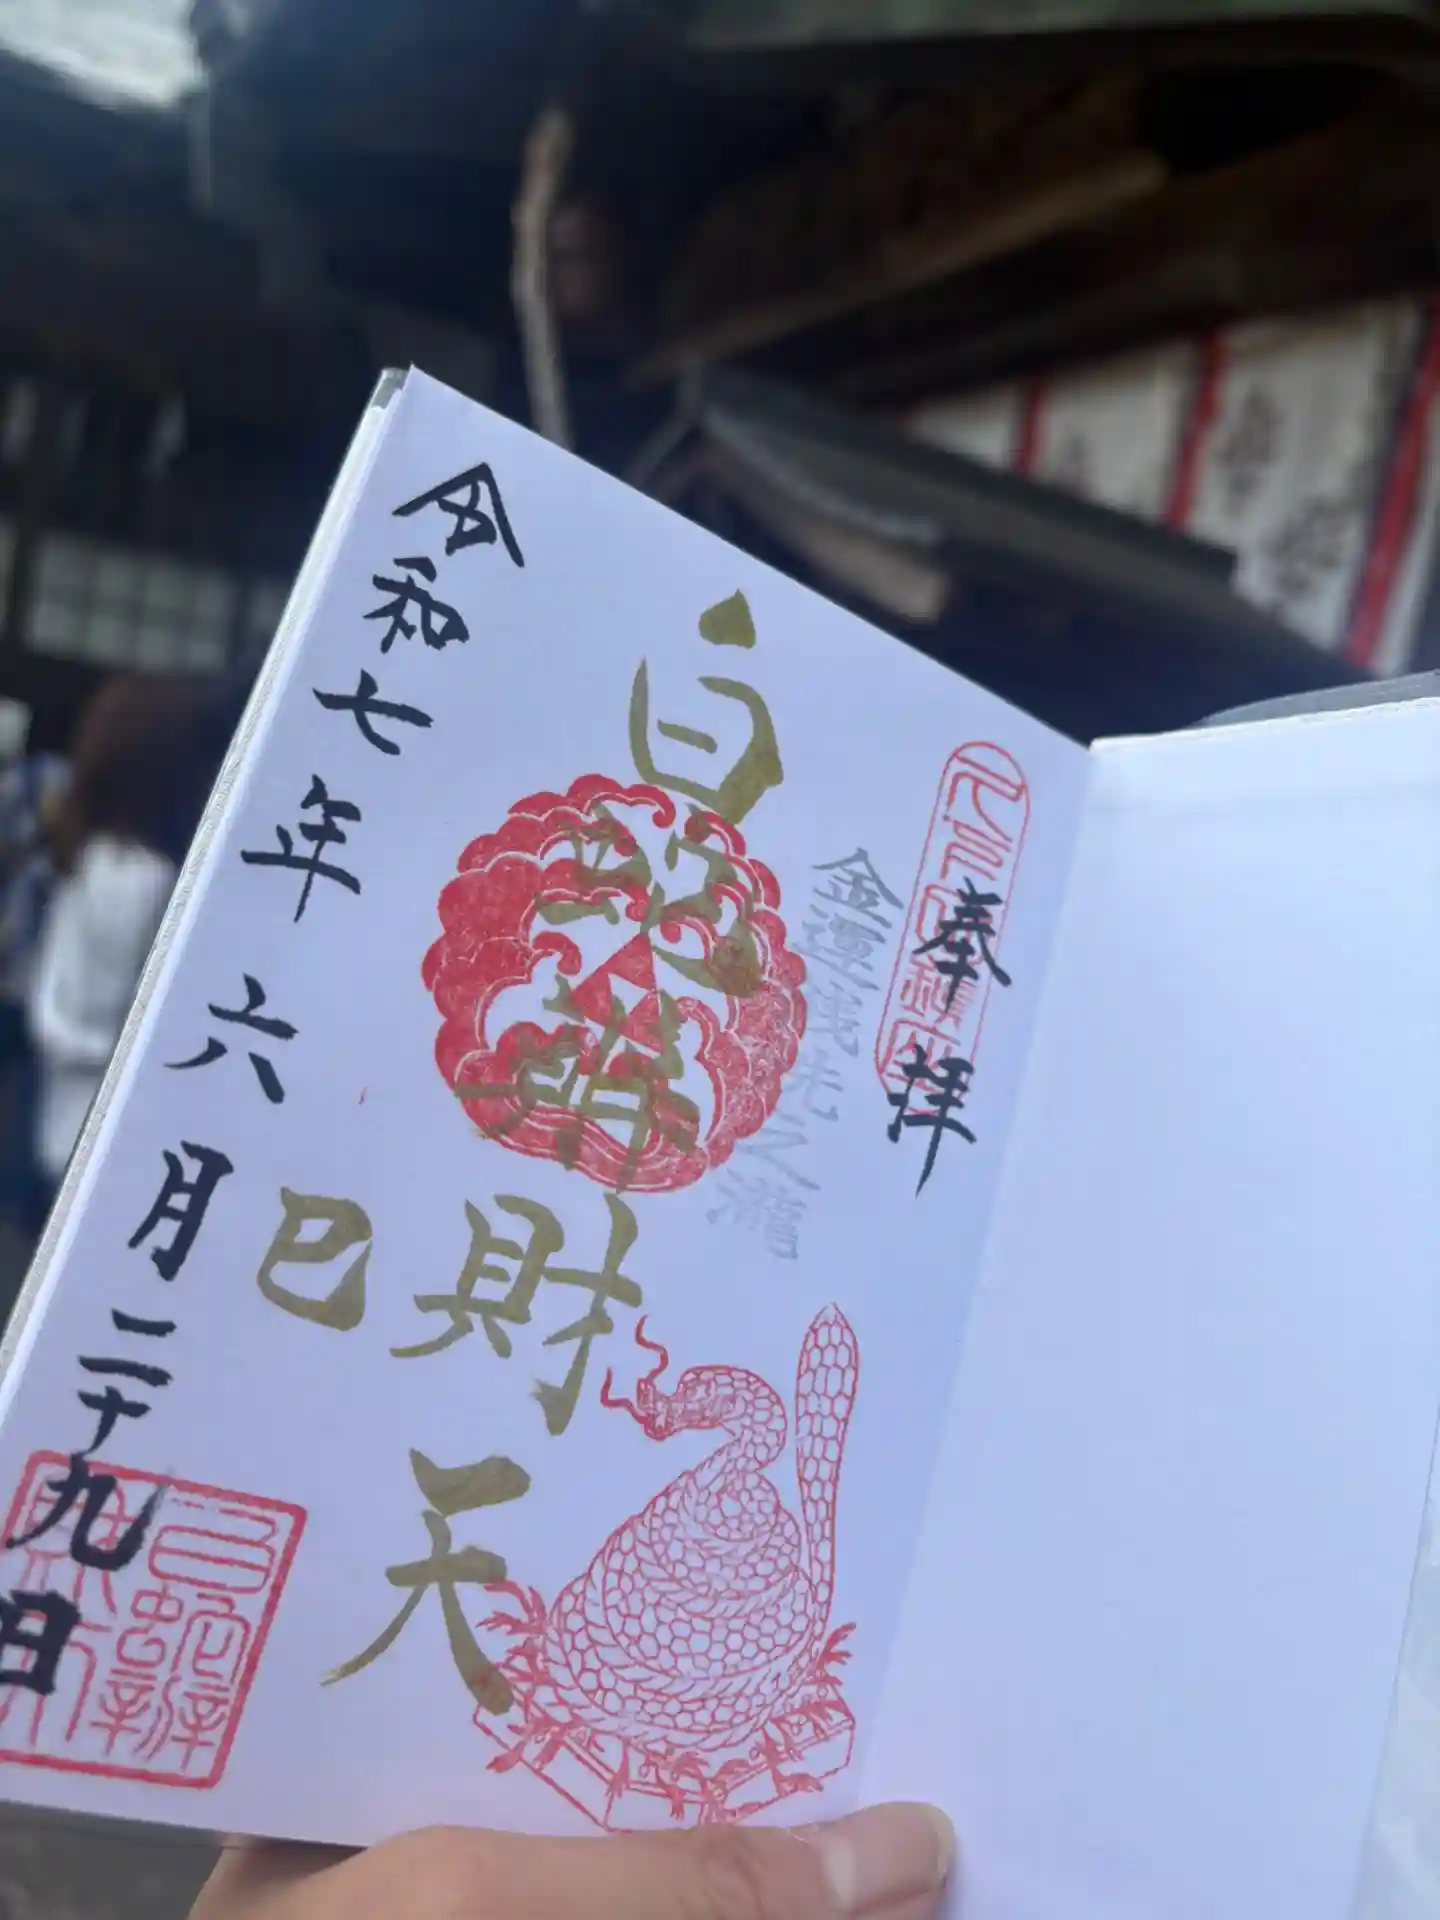 奉拝
金運銭洗之瀧
白蛇辨財天
巳
令和七年六月二十九日